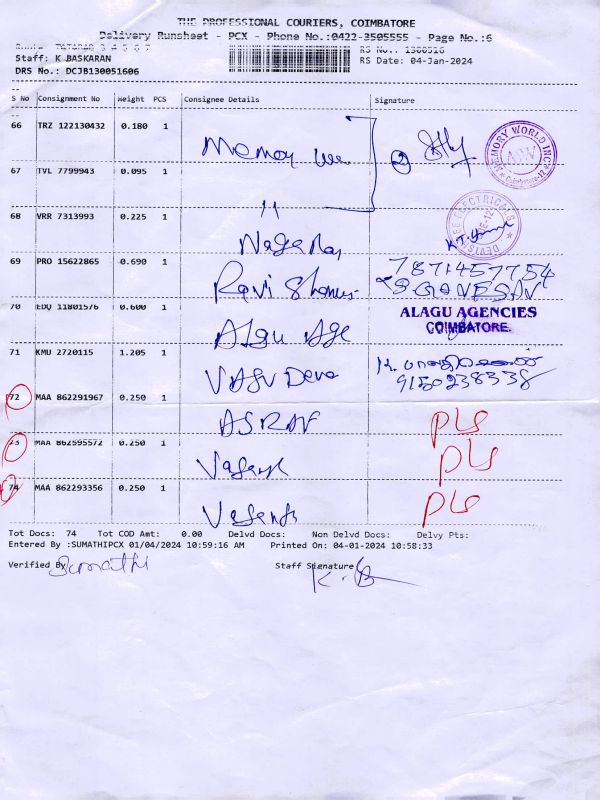 THE PROFESSIONAL COURIERS, COIMBATORE
Delivery Runsheet - PCX - Phone No.:0422-3505555 - Page No.:6
Staff: K BASKARAN
RS No.: 1306516
DRS No.: DCJB130051606
RS Date: 04-Jan-2024
S No Consignment No Weight PCS Consignee Details Signature
66 TRZ 122130432 0.180 1 Memory
MEMORY WORLD INC
Coimbatore-12
67 TVL 7799943 0.095 1 "
68 VRR 7313993 0.225 1 Nagaraj
ELECTRICALS
69 PRO 15622865 0.690 1 Ravi Shanker
7871457754
S GANESAN
70 EDQ 11801576 0.600 1 Alagu Age
ALAGU AGENCIES
COIMBATORE.
71 KMU 2720115 1.205 1 VASU Deva
9150238338
72 MAA 862291967 0.250 1 ASRAF
73 MAA 862595572 0.250 1
74 MAA 862293356 0.250 1
Tot Docs: 74 Tot COD Amt: 0.00 Delvd Docs: Non Delvd Docs: Delvy Pts:
Entered By :SUMATHIPCX 01/04/2024 10:59:16 AM Printed On: 04-01-2024 10:58:33
Verified By Sumathi Staff Signature K.B